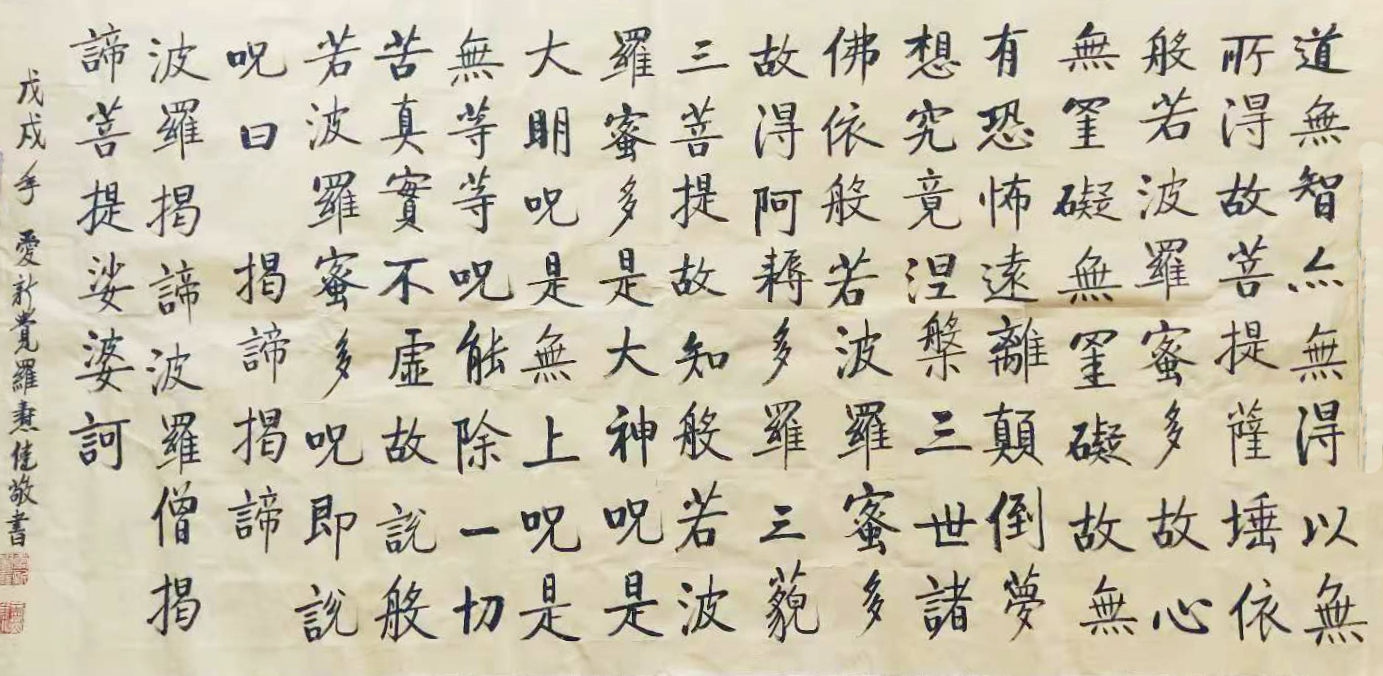 道無智亦無得以無
所得故菩提薩埵依
般若波羅蜜多故心
無罣礙無罣礙故無
有恐怖遠離顛倒夢
想究竟涅槃三世諸
佛依般若波羅蜜多
故得阿耨多羅三藐
三菩提故知般若波
羅蜜多是大神呪是
大明呪是無上呪是
無等等呪能除一切
苦真實不虛故說般
若波羅蜜多呪即說
呪曰 揭諦揭諦
波羅揭諦波羅僧揭
諦菩提娑婆訶
戊戌年 愛新覺羅佳敬書